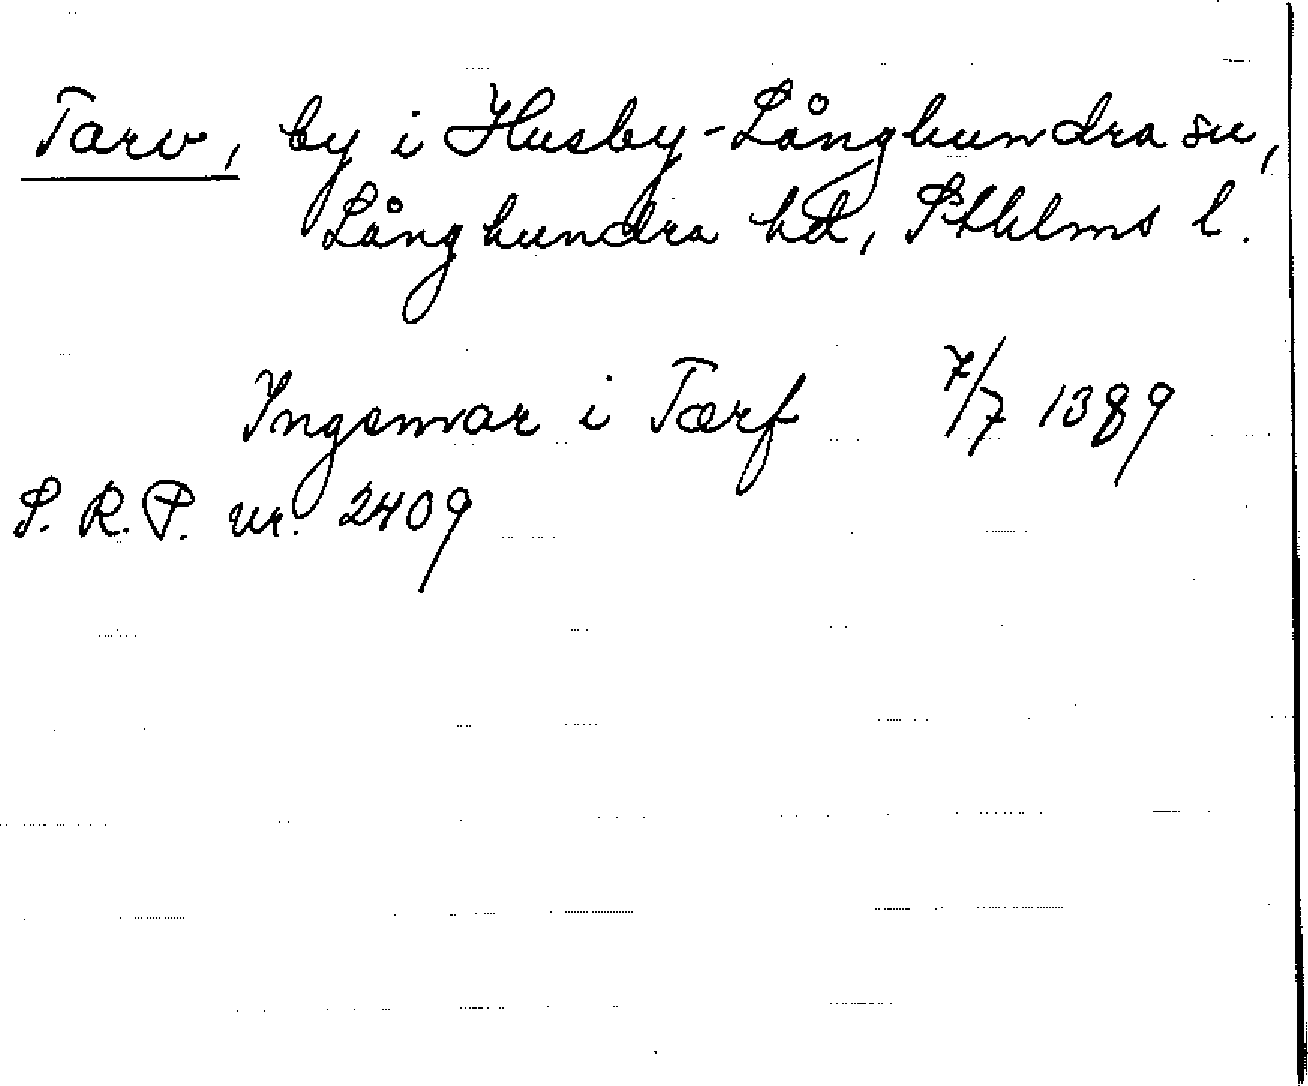 Tarv, by i Husby-Långhundra sn,
Långhundra hd, Sthlms l.
Ingemar i Tærf 7/7 1389
S. R. P. nr. 2409